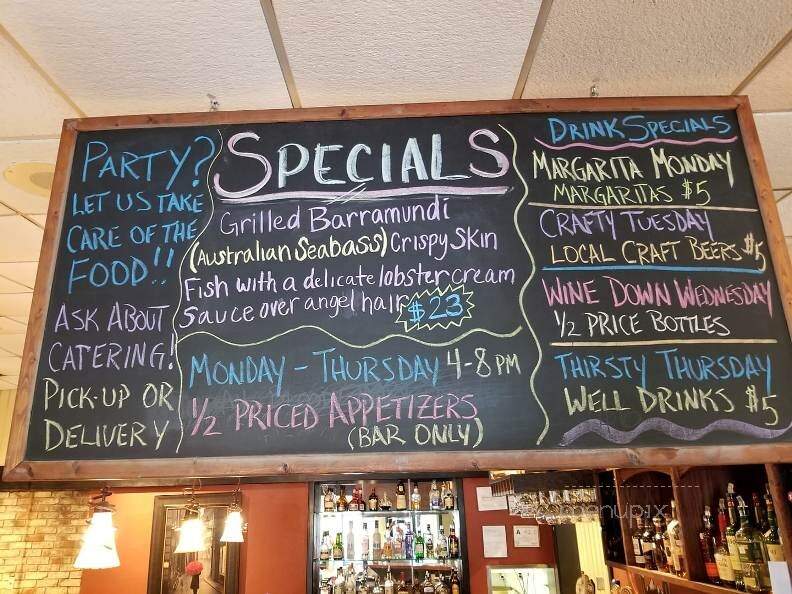 PARTY?
LET US TAKE
CARE OF THE
FOOD!!
ASK ABOUT
CATERING!
PICK-UP OR
DELIVERY
SPECIALS
Grilled Barramundi
(Australian Seabass) Crispy Skin
Fish with a delicate lobster cream
sauce over angel hair $23
MONDAY - THURSDAY 4-8 PM
1/2 PRICED APPETIZERS
(BAR ONLY)
DRINK SPECIALS
MARGARITA MONDAY
MARGARITAS $5
CRAFTY TUESDAY
LOCAL CRAFT BEERS $5
WINE DOWN WEDNESDAY
1/2 PRICE BOTTLES
THIRSTY THURSDAY
WELL DRINKS $5